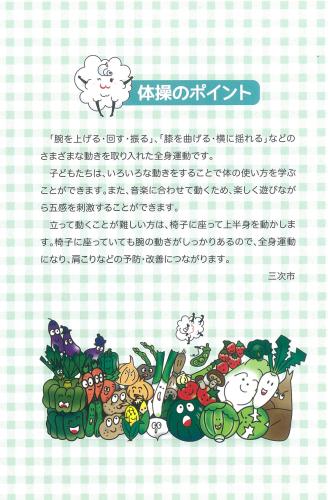 体操のポイント
「腕を上げる・回す・振る」、「膝を曲げる・横に揺れる」などの
さまざまな動きを取り入れた全身運動です。
子どもたちは、いろいろな動きをすることで体の使い方を学ぶ
ことができます。また、音楽に合わせて動くため、楽しく遊びなが
ら五感を刺激することができます。
立って動くことが難しい方は、椅子に座って上半身を動かしま
す。椅子に座っていても腕の動きがしっかりあるので、全身運動
になり、肩こりなどの予防・改善につながります。
三次市